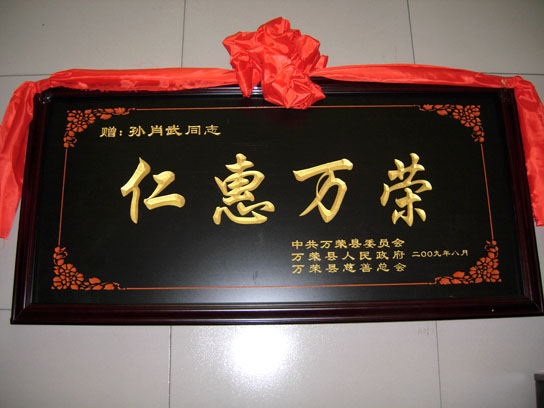 赠：孙肖武 同志
仁惠万荣
中共万荣县委员会
万荣县人民政府 二00九年八月
万荣县慈善总会